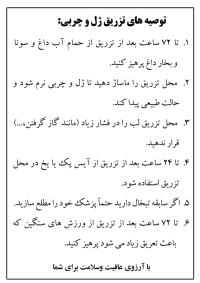 توصیه های تزریق ژل و چربی:
۱. تا ۷۲ ساعت بعد از تزریق از حمام آب داغ و سونا
و بخار داغ پرهیز کنید.
۲. محل تزریق را ماساژ دهید تا ژل و چربی نرم شود و
حالت طبیعی پیدا کند.
۳. محل تزریق لب را در فشار زیاد (مانند گاز گرفتن،...)
قرار ندهید.
۴. تا ۲۴ ساعت بعد از تزریق از آیس پک یا یخ در محل
تزریق استفاده شود.
۵. اگر سابقه تبخال دارید حتماً پزشک خود را مطلع سازید.
۶. تا ۷۲ ساعت بعد از تزریق از ورزش های سنگین که
باعث تعریق زیاد می شود پرهیز کنید.
با آرزوی عافیت وسلامت برای شما